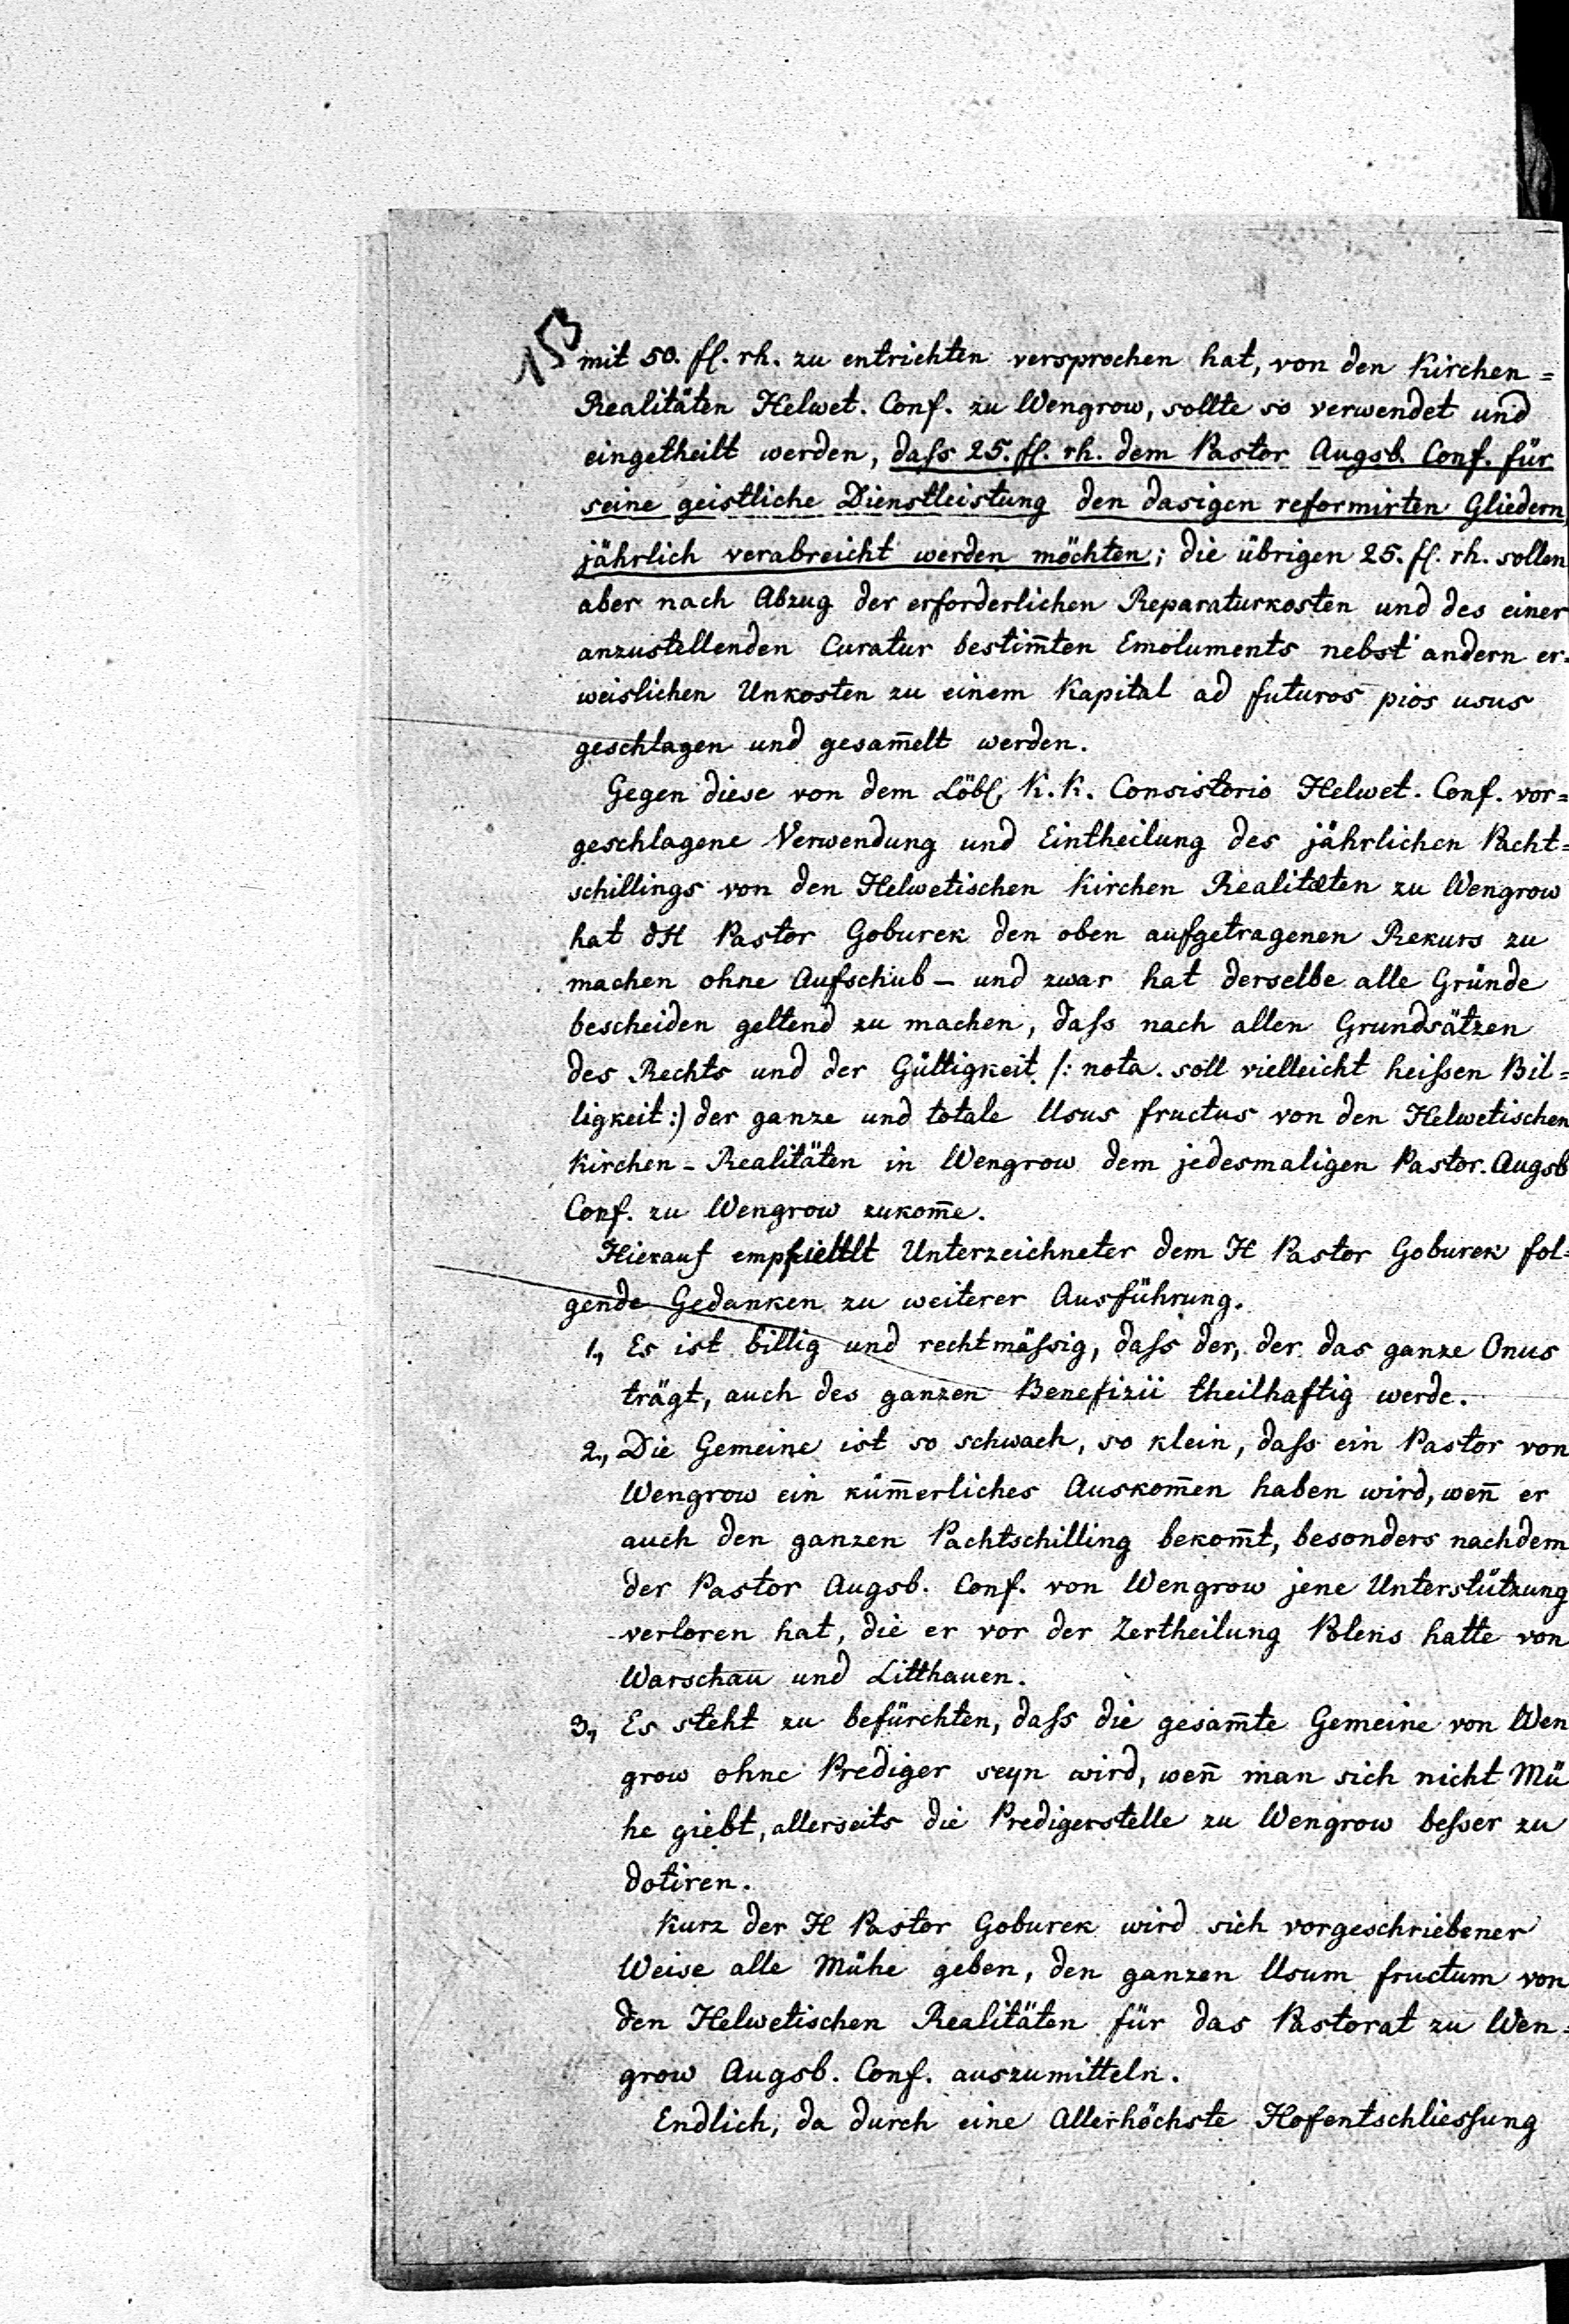 153
mit 50. fl. rh. zu entrichten versprochen hat, von den Kirchen=
Realitäten Helwet. Conf. zu Wengrow, sollte so verwendet und
eingetheilt werden, daſs 25. fl. rh. dem Pastor Augsb. Conf. für
seine geistliche Dienstleistung den dasigen reformirten Gliedern
jährlich verabreicht werden möchten; die übrigen 25. fl. rh. sollen
aber nach Abzug der erforderlichen Reparaturkosten und des einer
anzustellenden Curatur bestim̄ten Emoluments nebst andern er=
weislichen Unkosten zu einem Kapital ad futuros pios usus
geschlagen und gesam̄elt werden.
Gegen diese von dem Löbl. K. K. Consistorio Helwet. Conf. vor=
geschlagene Verwendung und Eintheilung des jährlichen Pacht=
schillings von den Helwetischen Kirchen Realitæten zu Wengrow
hat dH Pastor Goburek den oben aufgetragenen Rekurs zu
machen ohne Aufschub – und zwar hat derselbe alle Gründe
bescheiden geltend zu machen, daſs nach allen Grundsätzen
des Rechts und der Gültigkeit /: nota. soll vielleicht heiſsen Bil=
ligkeit :) der ganze und totale Usus fructus von den Helwetischen
Kirchen-Realitäten in Wengrow dem jedesmaligen Pastor. Augsb
Conf. zu Wengrow zukom̄e.
Hierauf empfiehlt Unterzeichneter dem H Pastor Goburek fol=
gende Gedanken zu weiterer Ausführung.
1., Es ist billig und rechtmäſsig, daſs der, der das ganze Onus
trägt, auch des ganzen Benefizii theilhaftig werde.
2., Die Gemeine ist so schwach, so klein, daſs ein Pastor von
Wengrow ein küm̄erliches Auskom̄en haben wird, wen̄ er
auch den ganzen Pachtschilling bekom̄t, besonders nachdem
der Pastor Augsb. Conf. von Wengrow jene Unterstützung
verloren hat, die er vor der Zertheilung Polens hatte von
Warschau und Litthauen.
3., Es steht zu befürchten, daſs die gesam̄te Gemeine von Wen
grow ohne Prediger seyn wird, wen̄ man sich nicht Mü
he giebt, allerseits die Predigerstelle zu Wengrow beſser zu
dotiren.
Kurz der H Pastor Goburek wird sich vorgeschriebener
Weise alle Mühe geben, den ganzen Usum fructum von
den Helwetischen Realitäten für das Pastorat zu Wen=
grow Augsb. Conf. auszumitteln.
Endlich, da durch eine Allerhöchste Hofentschlieſsung